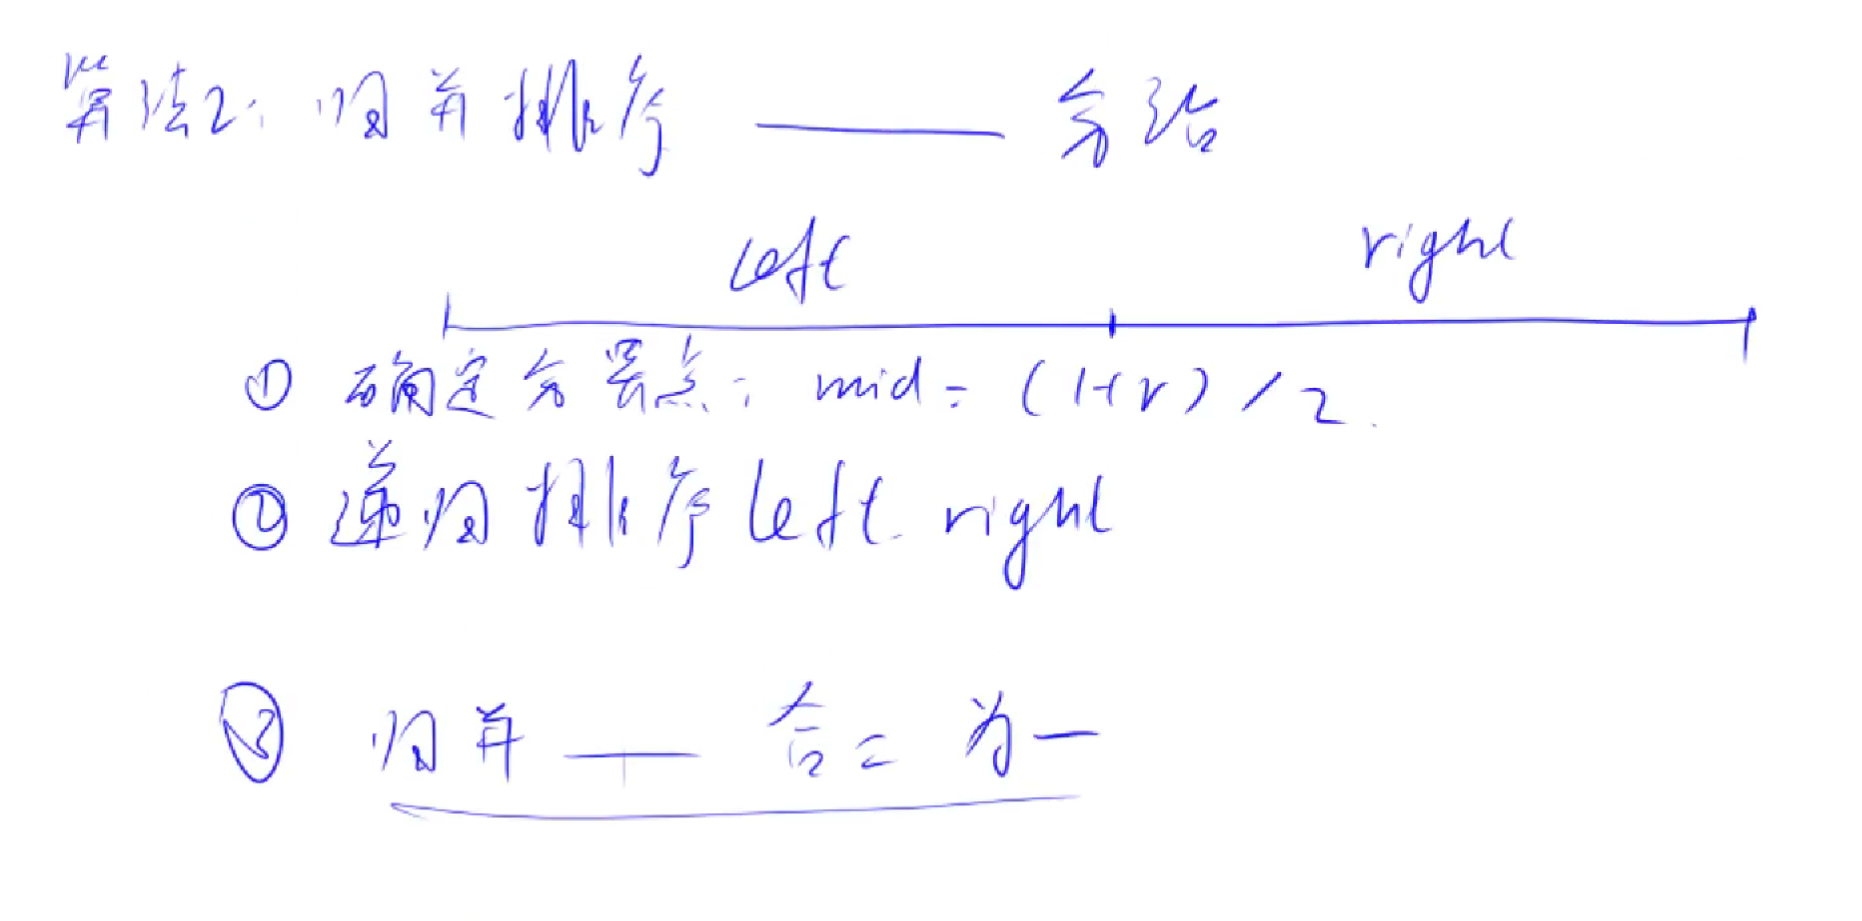 算法2: 归并排序 —— 分治
left right
① 确定分界点: mid = (l+r) / 2.
② 递归排序 left right
③ 归并 —— 合二为一